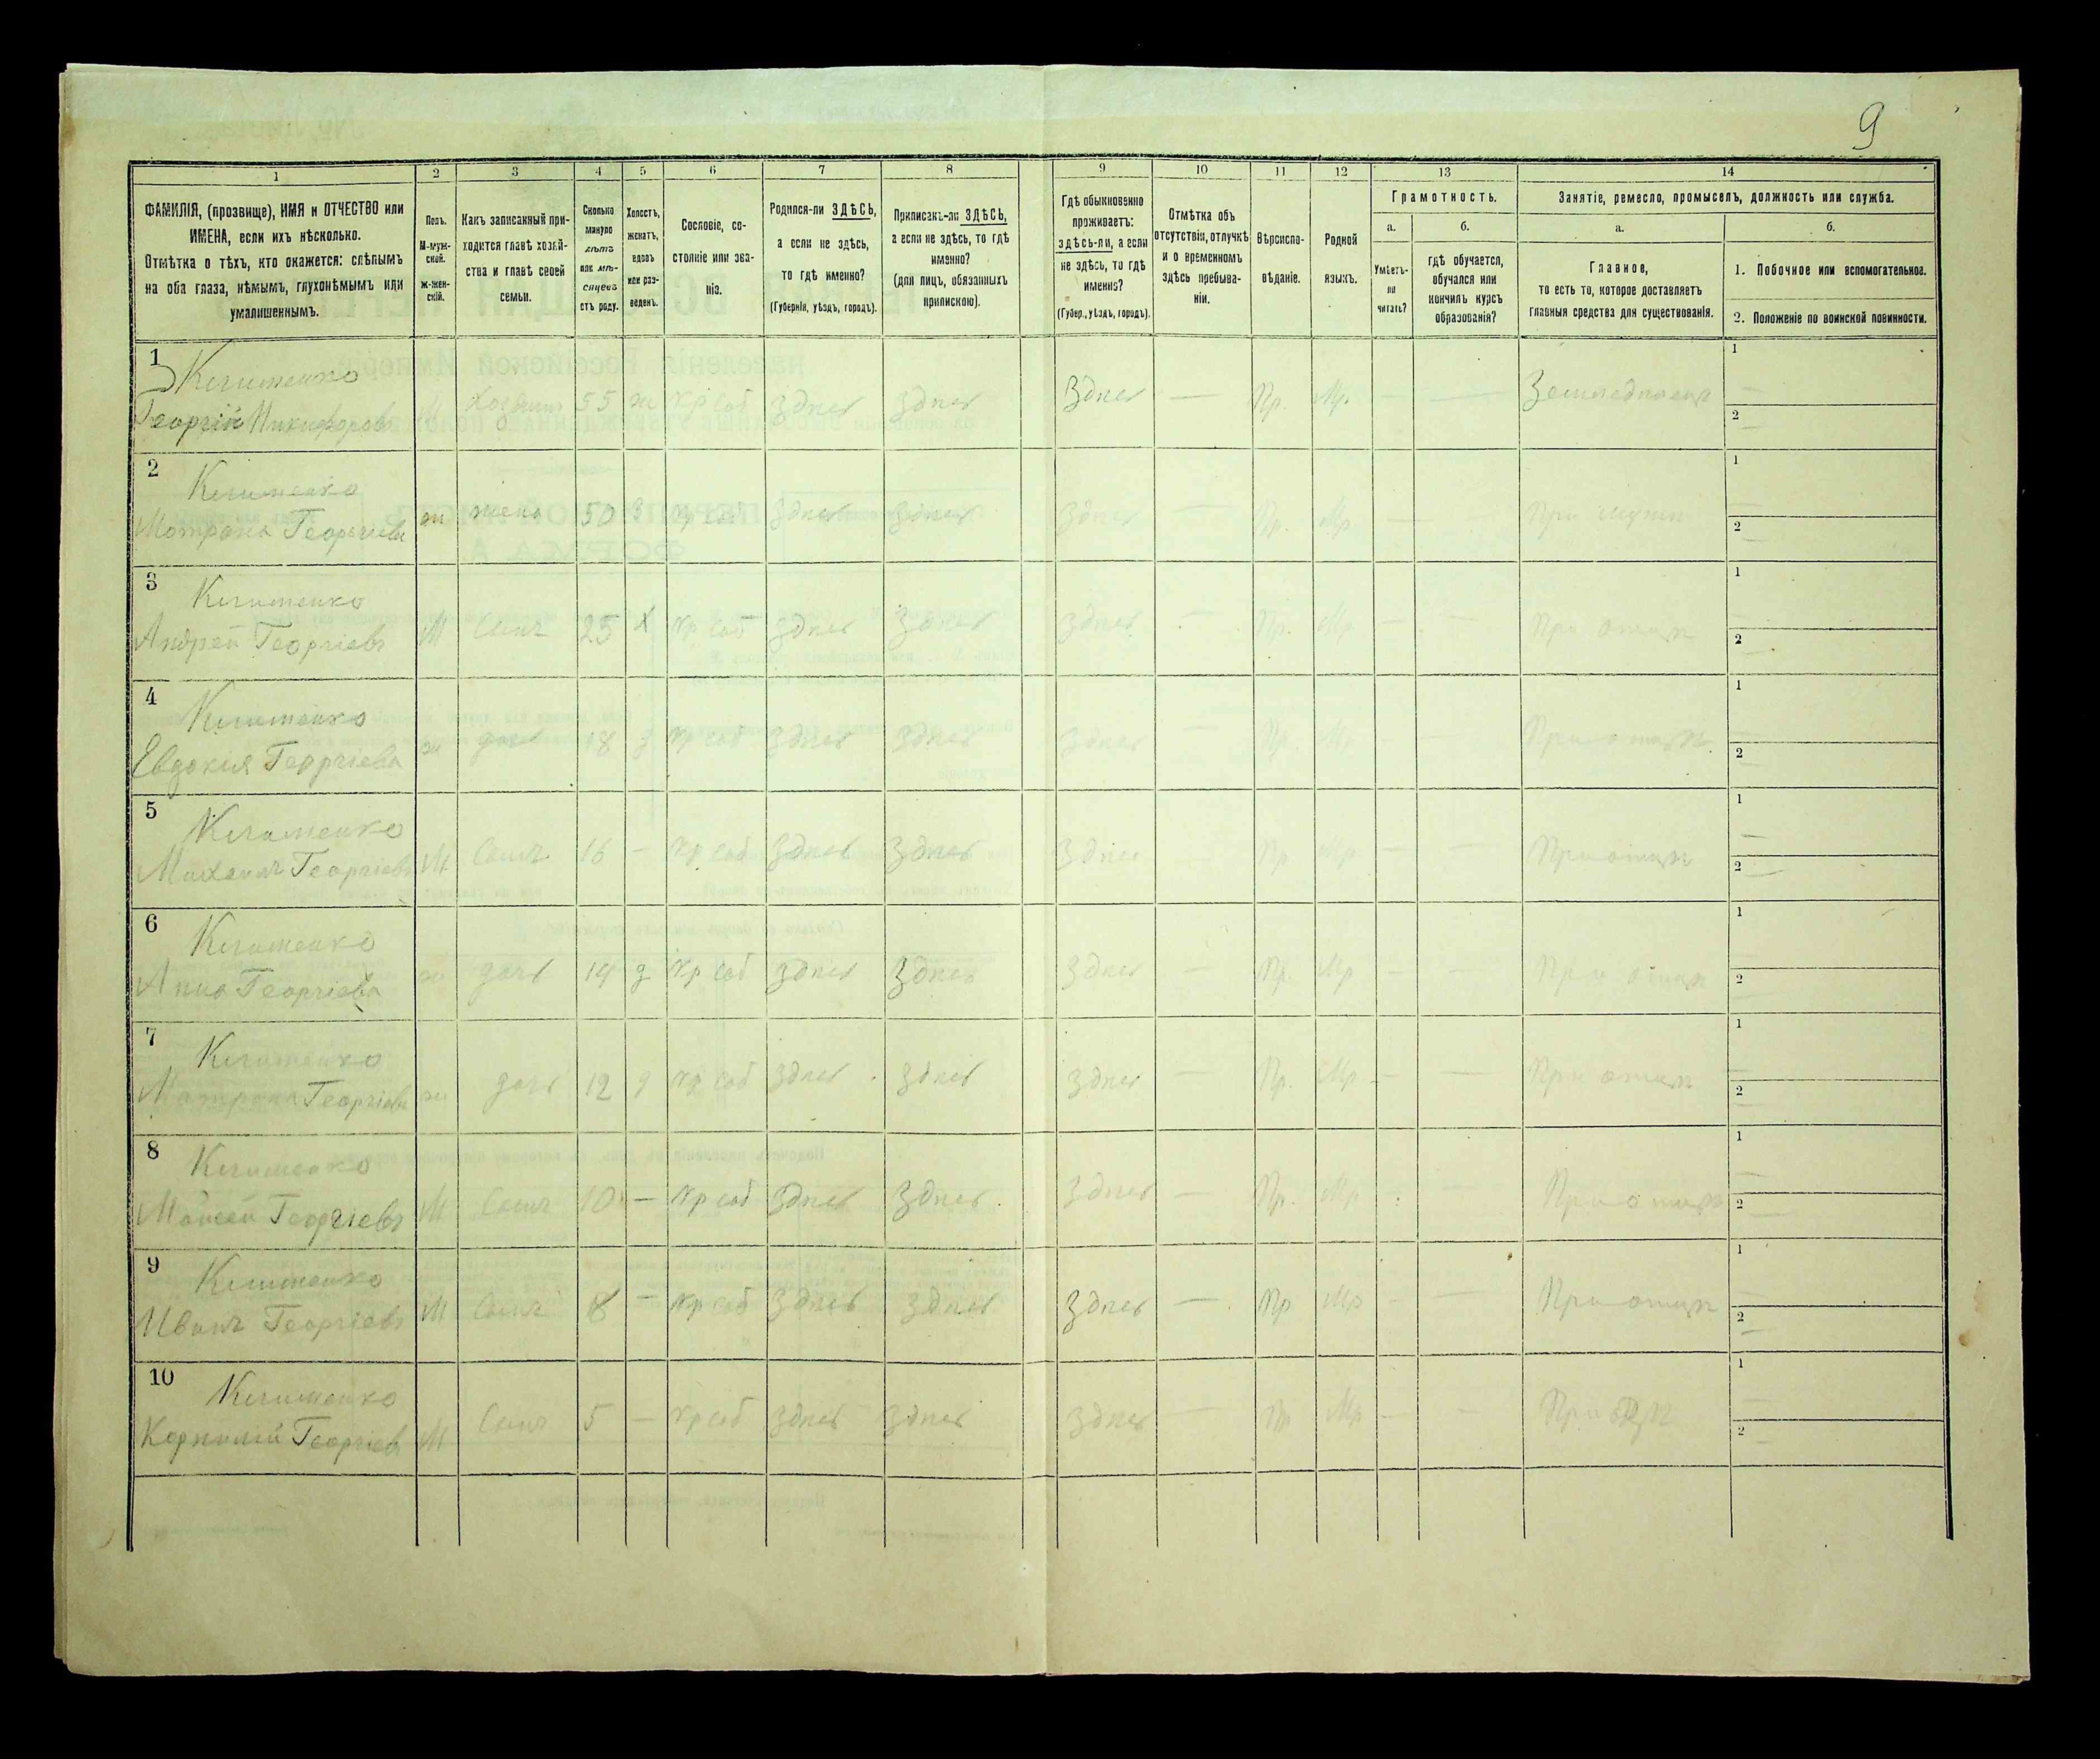 9
1 2 3 4 5 6 7 8 9 10 11 12 13 14
ФАМИЛІЯ, (прозвище), ИМЯ и ОТЧЕСТВО или
ИМЕНА, если ихъ нѣсколько.
Отмѣтка о тѣхъ, кто окажется: слѣпымъ
на оба глаза, нѣмымъ, глухонѣмымъ или
умалишеннымъ.
Полъ.
М-муж-
ской.
Ж-жен-
скій.
Какъ записанный при-
ходится главѣ хозяй-
ства и главѣ своей
семьи.
Сколько
минуло
лѣтъ
или мѣ-
сяцевъ
отъ роду.
Холостъ,
женатъ,
вдовъ
или раз-
веденъ.
Сословіе, со-
стояніе или зва-
ніе.
Родился-ли ЗДѢСЬ,
а если не здѣсь,
то гдѣ именно?
(Губернія, уѣздъ, городъ).
Приписанъ-ли ЗДѢСЬ,
а если не здѣсь, то гдѣ
именно?
(для лицъ, обязанныхъ
припискою).
Гдѣ обыкновенно
проживаетъ:
здѣсь-ли, а если
не здѣсь, то гдѣ
именно?
(Губер., уѣздъ, городъ).
Отмѣтка объ
отсутствіи, отлучкѣ
и о временномъ
здѣсь пребыва-
ніи.
Вѣроиспо-
вѣданіе.
Родной
языкъ.
Грамотность.
а.
Умѣетъ-
ли
читать?
б.
гдѣ обучается,
обучался или
кончилъ курсъ
образованія?
Занятіе, ремесло, промыселъ, должность или служба.
а.
Главное,
то есть то, которое доставляетъ
главныя средства для существованія.
б.
1. Побочное или вспомогательное.
2. Положеніе по воинской повинности.
1 Клименко
Георгій Никифоровъ М Хозяинъ 55 ж кр соб Здѣсь Здѣсь Здѣсь — Пр. Мр. — — Земледѣлецъ 1 — 2 —
2 Клименко
Мотрона Георгіева ж жена 50 З кр соб Здѣсь Здѣсь Здѣсь — Пр. Мр — — При мужѣ 1 — 2 —
3 Клименко
Андрей Георгіевъ М Сынъ 25 Х кр соб Здѣсь Здѣсь Здѣсь — Пр. Мр — — При отцѣ 1 — 2 —
4 Клименко
Евдокія Георгіева ж дочь 18 д кр соб Здѣсь Здѣсь Здѣсь — Пр. Мр — — При отцѣ 1 — 2 —
5 Клименко
Михаилъ Георгіевъ М. Сынъ 16 — кр соб Здѣсь Здѣсь Здѣсь — Пр Мр — — При отцѣ 1 — 2 —
6 Клименко
Анна Георгіева ж дочь 14 д кр соб Здѣсь Здѣсь Здѣсь — Пр. Мр — — При отцѣ 1 — 2 —
7 Клименко
Мотрона Георгіева ж дочь 12 д кр соб Здѣсь Здѣсь Здѣсь — Пр. Мр — — При отцѣ 1 — 2 —
8 Клименко
Моисей Георгіевъ М Сынъ 10 — кр соб Здѣсь Здѣсь Здѣсь — Пр. Мр — При отцѣ 1 — 2 —
9 Клименко
Иванъ Георгіевъ М Сынъ 8 — кр соб Здѣсь Здѣсь Здѣсь — Пр Мр — — При отцѣ 1 — 2 —
10 Клименко
Корнилій Георгіевъ М Сынъ 5 — кр соб Здѣсь Здѣсь Здѣсь — Пр Мр — — При 1 — 2 —